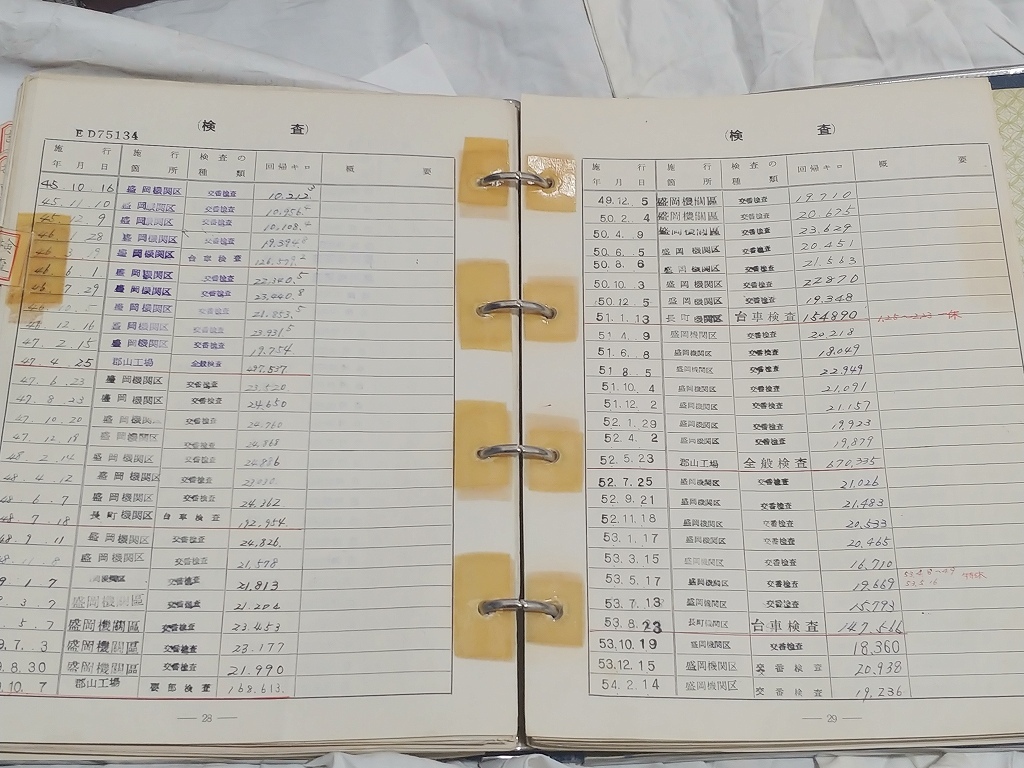 ED75134
(検 査)
施行年月日 施行箇所 検査の種類 回帰キロ 概要
45.10.16 盛岡機関区 交番検査 10,212.3
45.11.10 盛岡機関区 交番検査
45.12.9 盛岡機関区 交番検査
28 盛岡機関区 交番検査
盛岡機関区 台車検査
6.1 盛岡機関区 交番検査 22,340.5
7.29 盛岡機関区 交番検査 23,440.8
盛岡機関区 交番検査 21,853.5
12.16 盛岡機関区 交番検査
47.2.15 盛岡機関区 交番検査 19,754
47.4.25 郡山工場 全般検査 497,537
47.6.23 盛岡機関区 交番検査 23,520
47.8.23 盛岡機関区 交番検査 24,650
47.10.20 盛岡機関区 交番検査 24,760
47.12.18 盛岡機関区 交番検査 24,868
48.2.14 盛岡機関区 交番検査 24,886
48.4.12 盛岡機関区 交番検査
48.6.7 盛岡機関区 交番検査 24,362
48.7.18 長町機関区 台車検査 192,954
48.9.11 盛岡機関区 交番検査 24,826
盛岡機関区 交番検査 21,578
9.1.7 機関区 交番検査 21,813
3.7 盛岡機関區 交番検査 21,204
5.7 盛岡機関區 交番検査 23,453
9.7.3 盛岡機関區 交番検査 23,177
9.8.30 盛岡機関區 交番検査 21,990
10.7 郡山工場 要部検査 168,613
— 28 —
(検 査)
施行年月日 施行箇所 検査の種類 回帰キロ 概要
49.12.5 盛岡機関區 交番検査 19,710
50.2.4 盛岡機関區 交番検査 20,675
50.4.9 盛岡機関區 交番検査 23,629
50.6.5 盛岡機関区 交番検査 20,451
50.8.6 盛岡機関区 交番検査 21,563
50.10.3 盛岡機関区 交番検査 22870
50.12.5 盛岡機関区 交番検査 19,348
51.1.13 長町機関区 台車検査 154890
51.4.9 盛岡機関区 交番検査 20,218
51.6.8 盛岡機関区 交番検査 18,049
51.8.5 盛岡機関区 交番検査 22,949
51.10.4 盛岡機関区 交番検査 21,091
51.12.2 盛岡機関区 交番検査 21,157
52.1.29 盛岡機関区 交番検査 19,923
52.4.2 盛岡機関区 交番検査 19,879
52.5.23 郡山工場 全般検査 670,335
52.7.25 盛岡機関区 交番検査 21,026
52.9.21 盛岡機関区 交番検査 21,483
52.11.18 盛岡機関区 交番検査 20,533
53.1.17 盛岡機関区 交番検査 20,465
53.3.15 盛岡機関区 交番検査 16,710
53.5.17 盛岡機関区 交番検査 19,669
53.7.13 盛岡機関区 交番検査 15,793
53.8.23 長町機関区 台車検査 147,566
53.10.19 盛岡機関区 交番検査 18,360
53.12.15 盛岡機関区 交番検査 20,938
54.2.14 盛岡機関区 交番検査 19,236
— 29 —